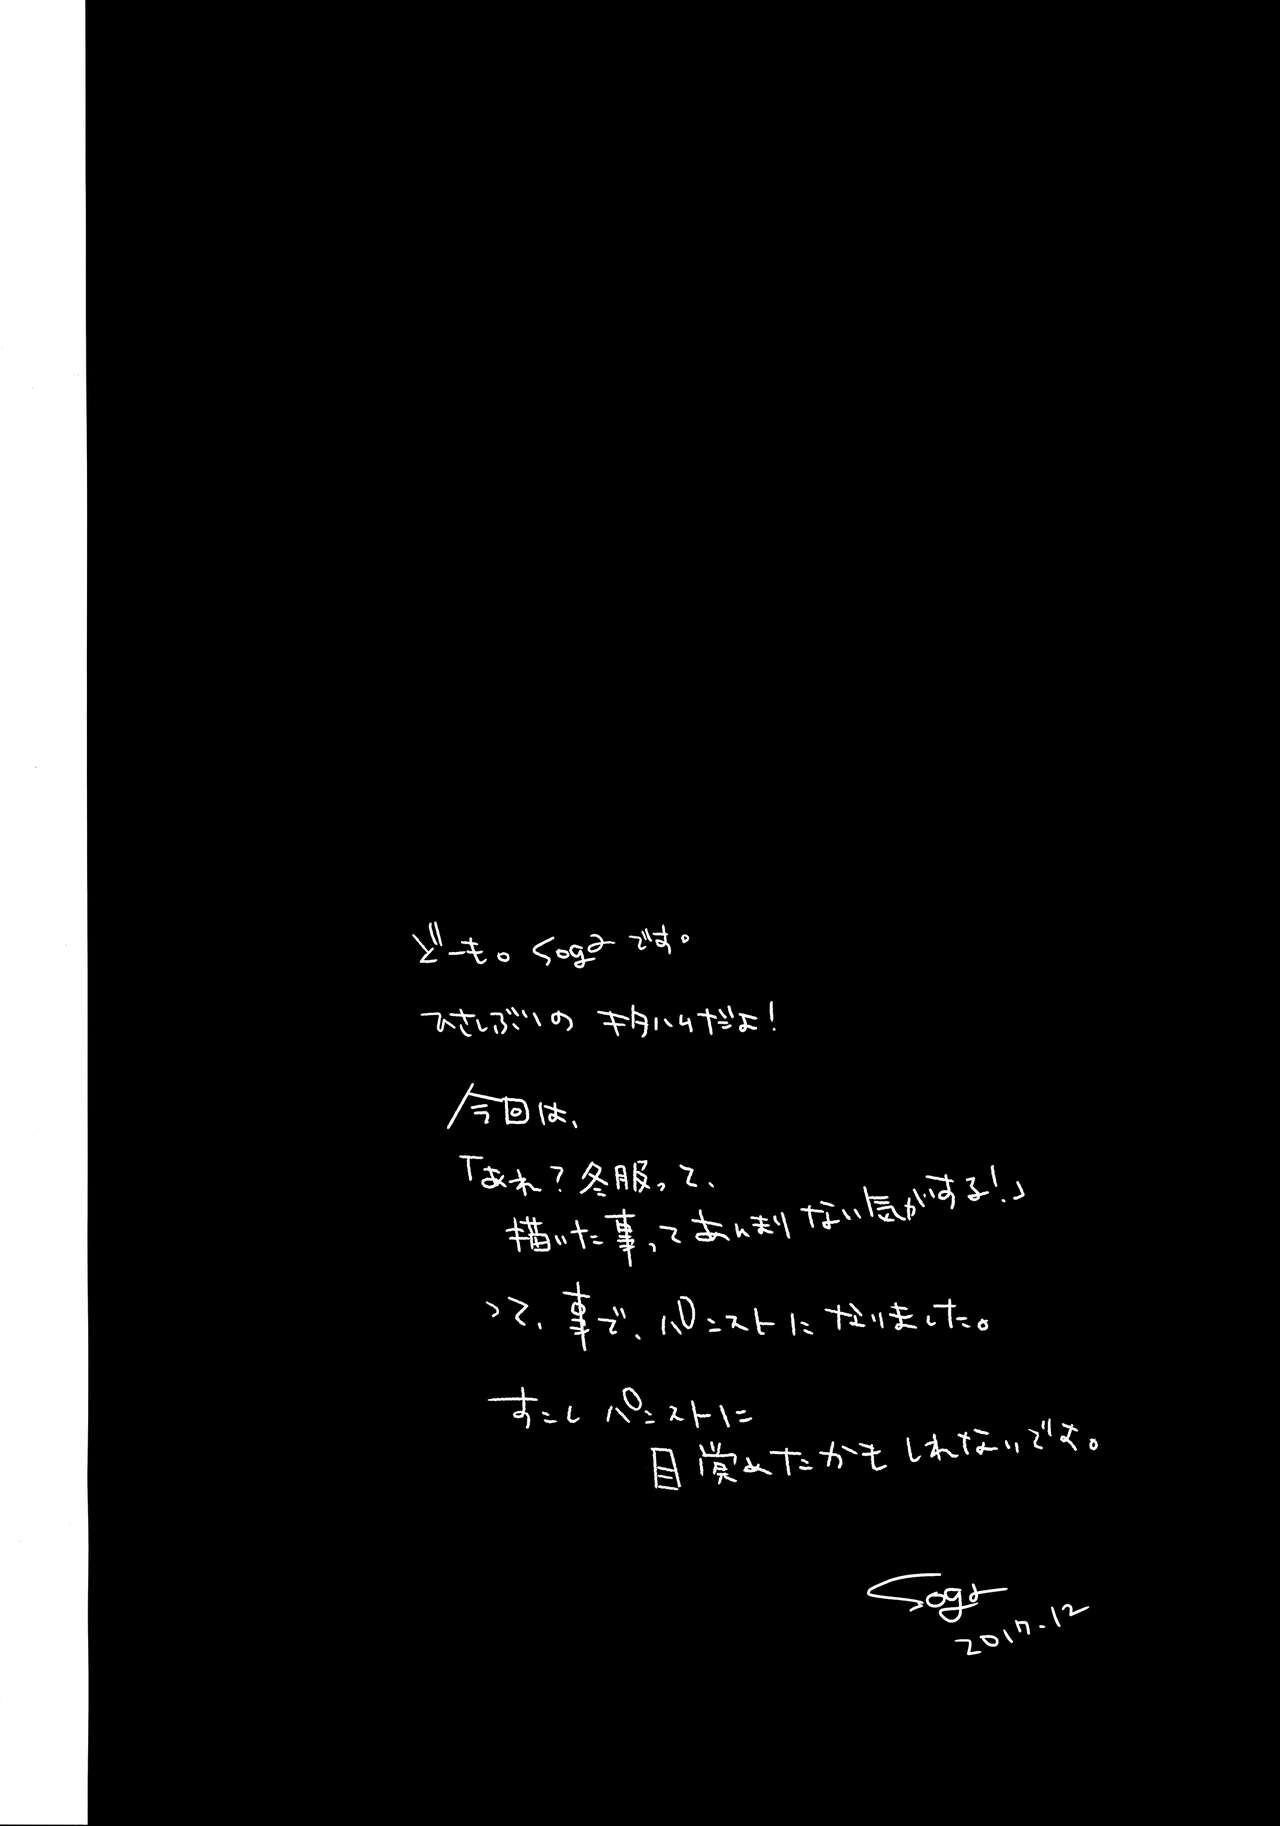 どーも。Sogaです。
ひさしぶりの キタハムだよ!
今回は、
「あれ?冬服って、
描いた事ってあんまりない気がする!」
って、事で、パンストになりました。
すこし パンストに
目覚めたかもしれないです。
Soga
2017.12